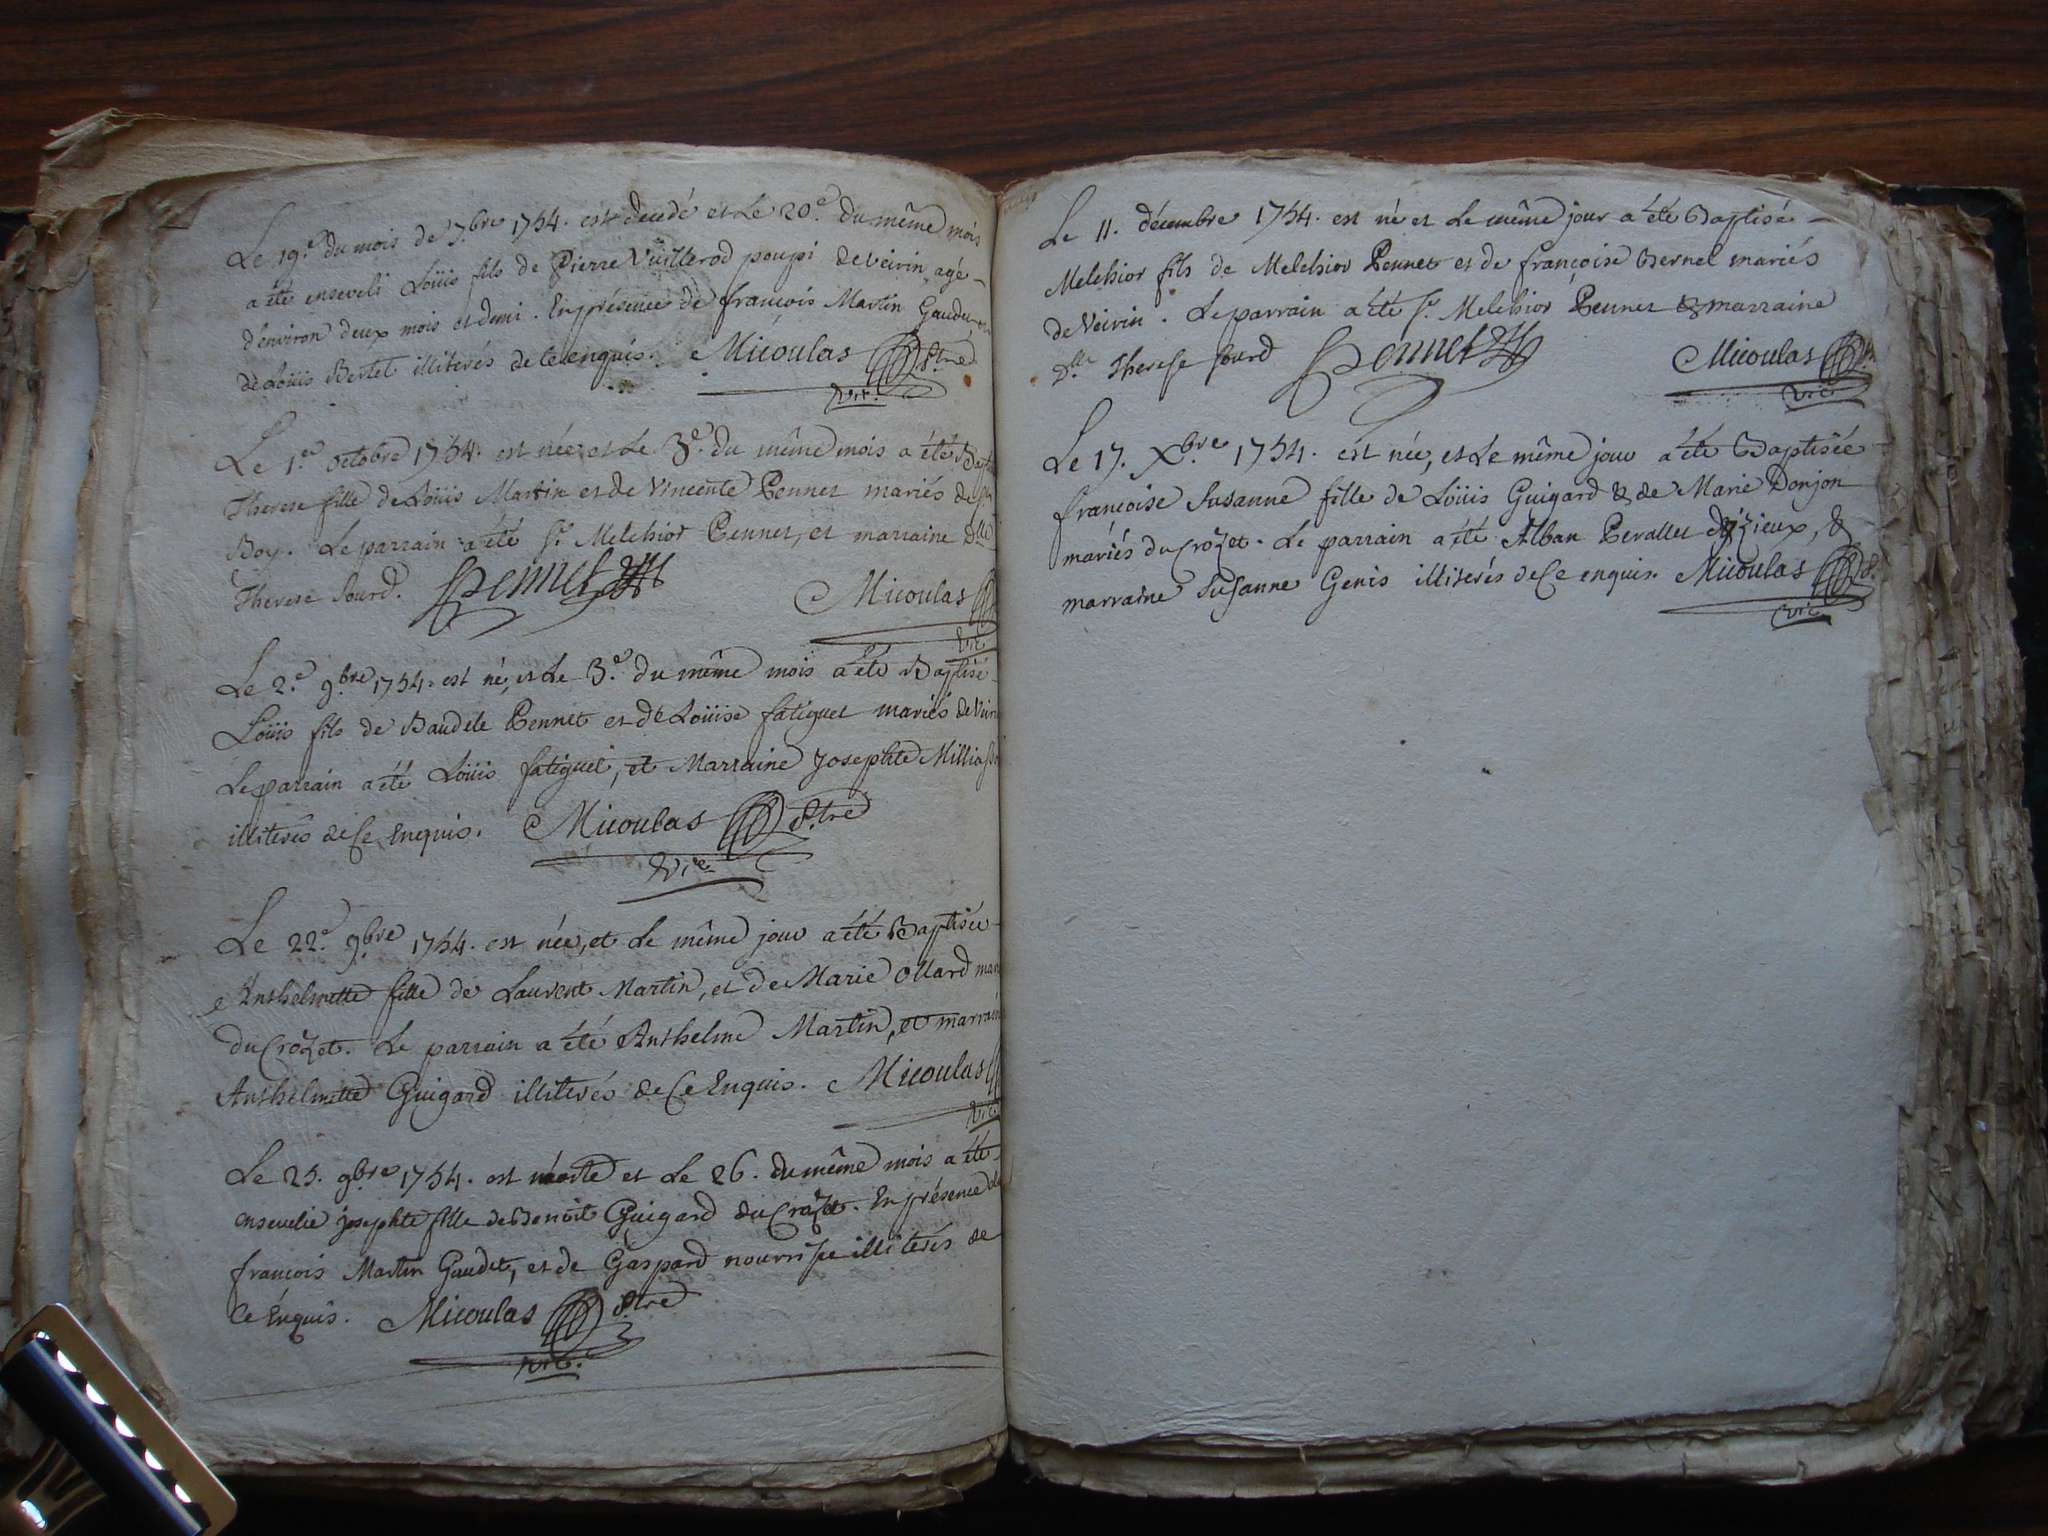 Le 19.e du mois de 7.bre 1754. est decedé et Le 20.e du même mois
a été enseveli Loüis fils de Pierre Vuillerod poupi de veirin agé
d'environ deux mois et demi. En présence de françois Martin Gaudet, et
de Loüis Bertet illiterés de ce enquis. Micoulas p.tre
vic.
Le 1.er octobre 1754. est née et Le 3.e du même mois a été Bapt
Therese fille de Loüis Martin et de Vincente Pennet mariés de
Boy. Le parrain a été S.r Melchior Pennet, et marraine d.lle
Therese Sourd. Pennet Micoulas
vic
Le 2.e 9.bre 1754. est né, et Le 3.e du même mois a été Baptisé
Loüis fils de Baudele Pennet et de Loüise fatiguet mariés de Veirin
Le parrain a été Loüis fatiguet, et Marraine Josephte
illiterés de Ce Enquis. Micoulas p.tre
Vic.
Le 22.e 9.bre 1754. est née, et Le même jour a été Baptisée
Anthelmette fille de Laurent Martin, et de Marie Ollard mar
du Crozet. Le parrain a été Anthelme Martin, et marrain
Anthelmette Guigard illiterés de Ce Enquis. Micoulas
Vic
Le 25. 9bre 1754. est morte et Le 26. du même mois a été
ensevelie josephte fille de Benoit Guigard du Crozet. En présence de
françois Martin Gaudet, et de Gaspard nourrisse illiterés de
Ce Enquis. Micoulas p.tre
vic.
Le 11. décembre 1754. est né et Le même jour a été Baptisé
Melchior fils de Melchior Pennet et de françoise Bernel mariés
de Veirin. Le parrain a été S.r Melchior Pennet & marraine
D.lle Therese Sourd Pennet Micoulas p.
vic
Le 17. X.bre 1754. est née, et Le même jour a été Baptisée
françoise Susanne fille de Loüis Guigard & de Marie Donjon
mariés du Crozet. Le parrain a été Alban Perallet d'izieux, &
marraine Susanne Genis illiterés de Ce enquis. Micoulas p.
vic